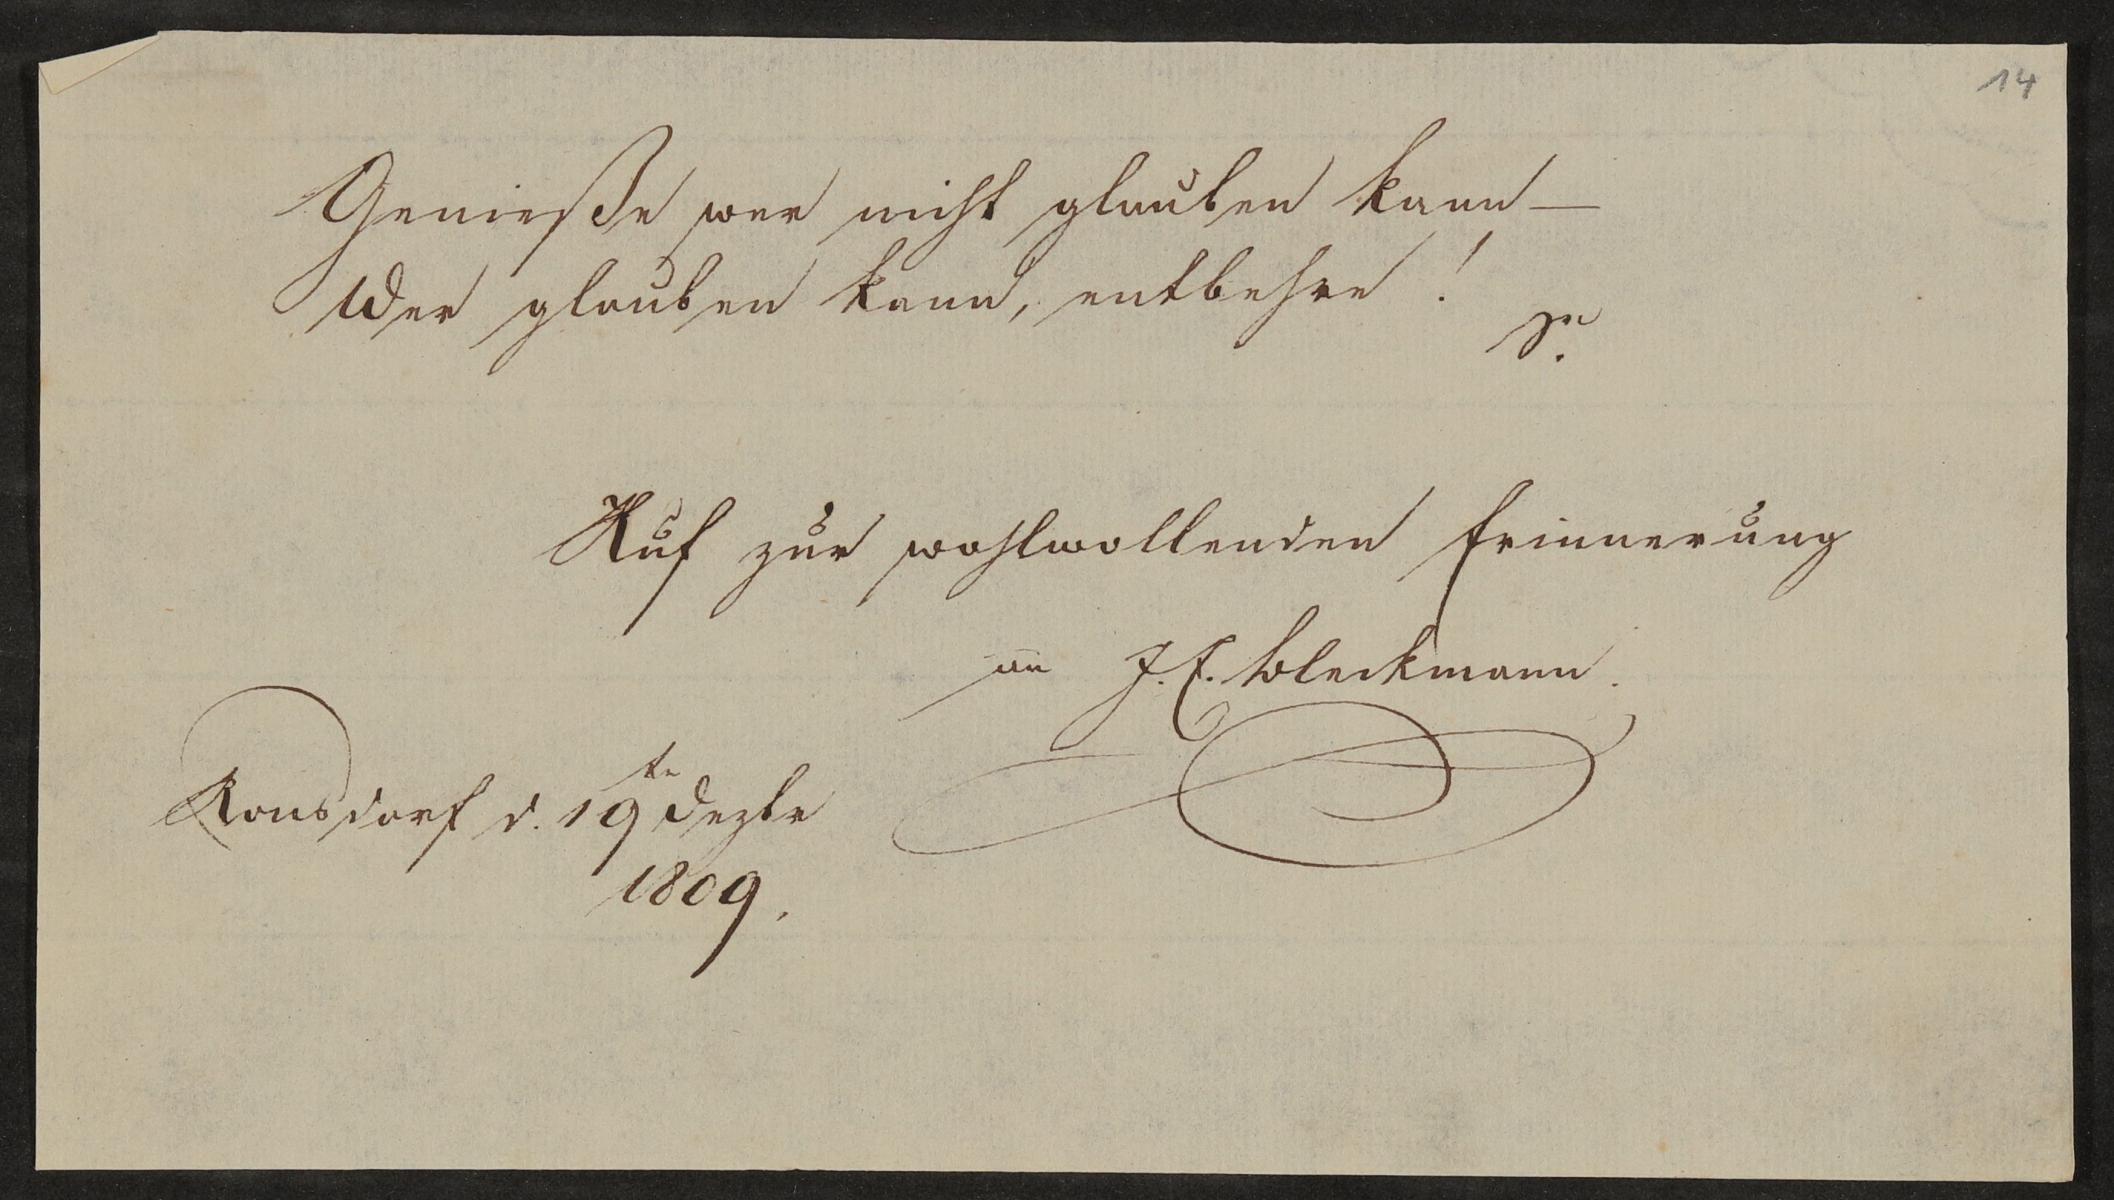 14
Genieße wer nicht glauben kann—
Wer glauben kann, entbehre!
Ruf zur wohlwollenden Erinnerung
an J. E. Bleckmann.
Ronsdorf d. 19te Dezbr
1809.